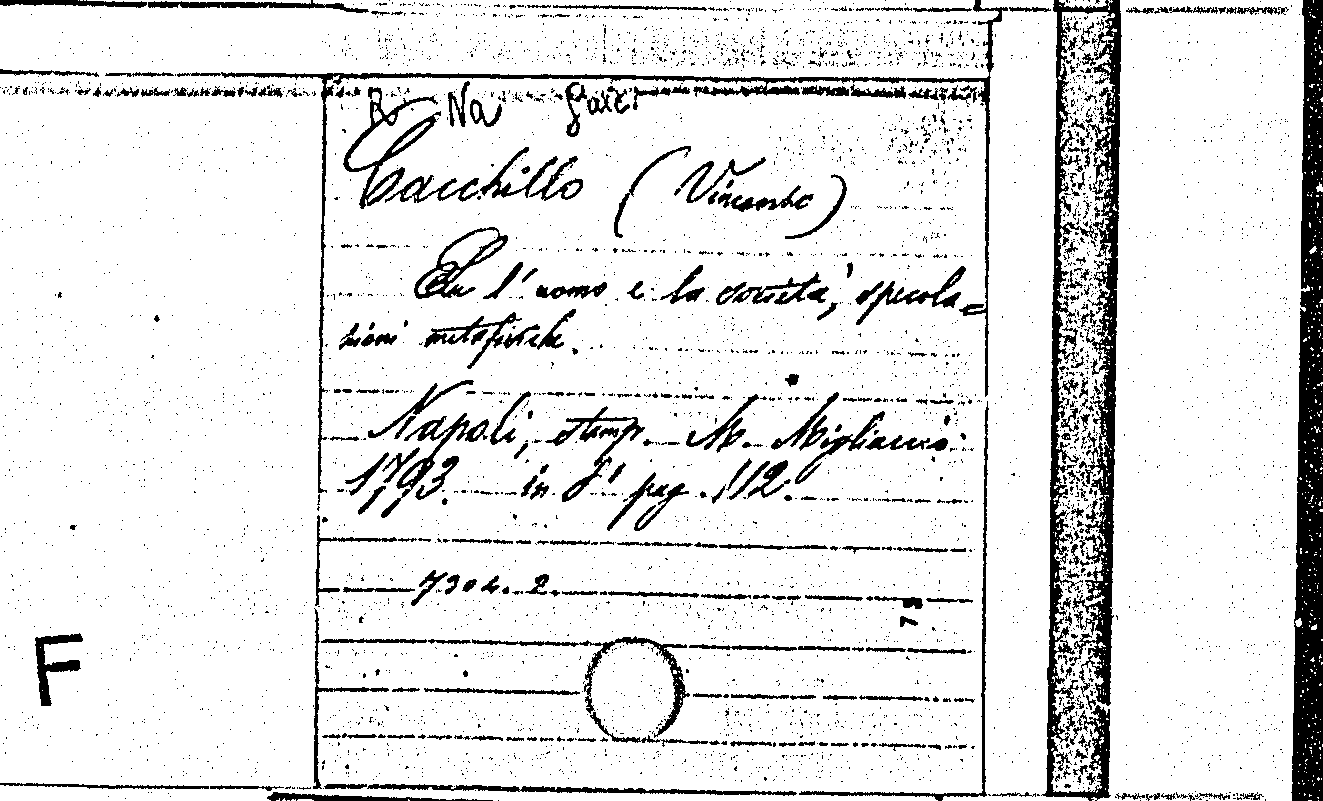 R Na
Cacchillo (Vincenzo)
Su l'uomo e la società, specola=
zioni metafisiche.
Napoli, stamp. M. Migliaccio
1793. in 8° pag. 112.
730 2.
F